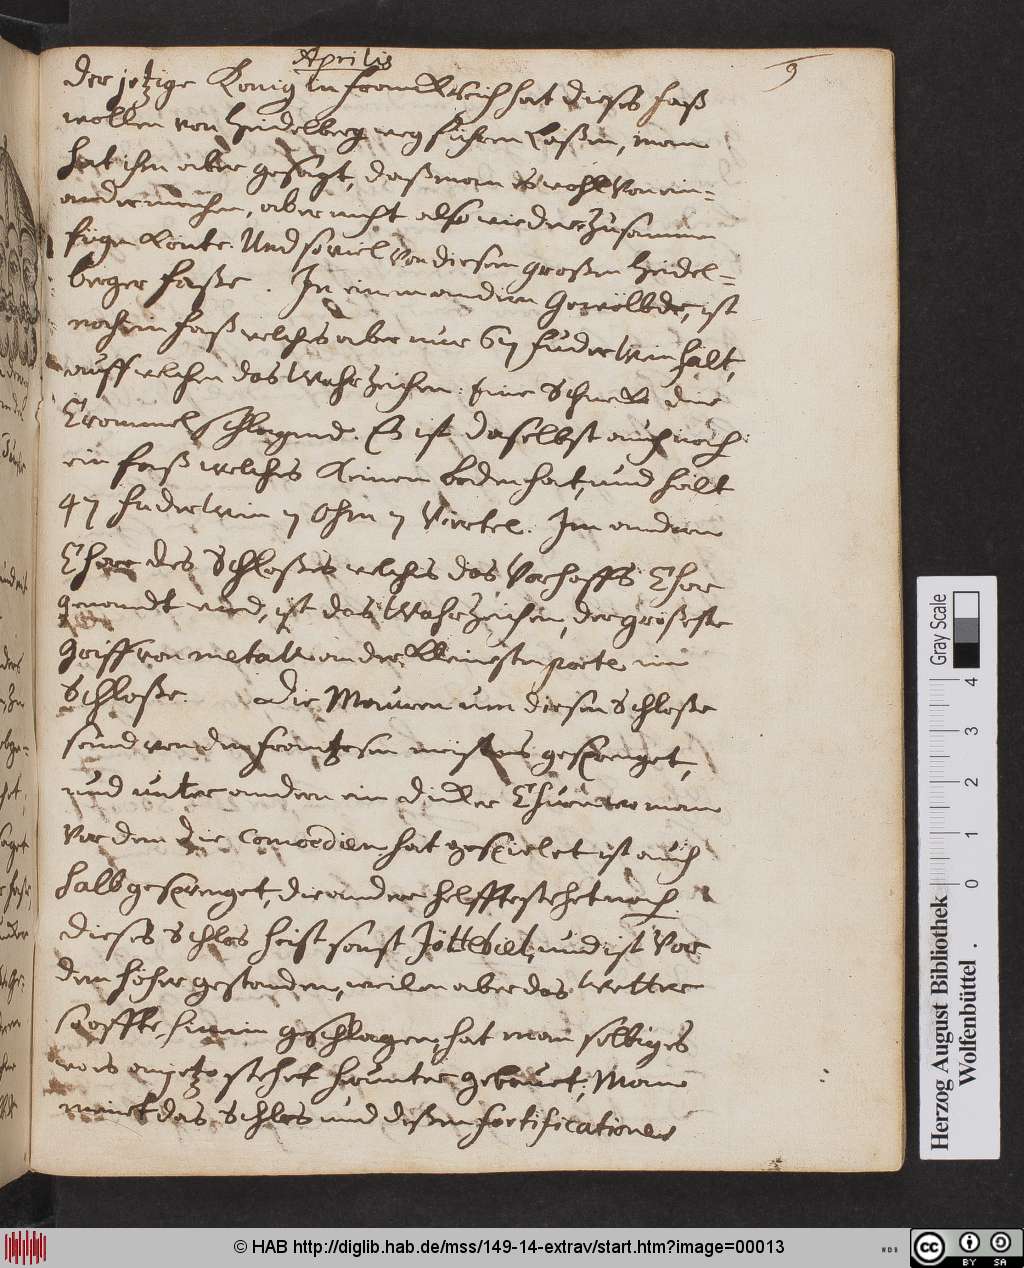 Aprilis
9
der jetzige König in Franckreich hat dieses Faß
wollen von Heidelberg weg führen Laßen, man
hat ihm aber gesagt, daß man es wohl Von ein-
ander nehmen, aber nicht also wieder Zusammen
fügen könte. Und so viel Von diesem großen Heidel-
berger Faße. In einem andern Gewölbde, ist
noch ein Faß welches aber nur 67 Fuder Wein hält,
auff welchen das WahrZeichen: Eine Schneck die
Trommel schlagend. Es ist daselbst auch noch
ein Faß welches keinen boden hat, und hält
47 Fuder Wein 7 Ohm 7 Viertel. Im andern
Thore des Schloßes welches das Vorhoffs Thor
genandt wird, ist das WahrZeichen, der größeste
Greiff von metall an der kleinesten porte im
Schloße. Die Mauren um diesen Schloße
sind von den Frantzosen meistens gesprenget,
und unter andern ein dicker Thurn wo man
Vor dem die Comoedien hat gespielet ist auch
halb gesprenget, die andere helffte stehet noch.
Dieses Schlos heist sonst Jöttebüel, und ist Vor
dem höher gestanden, weilen aber das Wetter
so offte hinein geschlagen, hat man selbiges
wo es anjetzo stehet herunter gebauet; Man
meinet das Schlos und deßen fortificationes
Gray Scale
0 1 2 3 4
Herzog August Bibliothek
Wolfenbüttel
© HAB http://diglib.hab.de/mss/149-14-extrav/start.htm?image=00013
WDB
cc BY SA